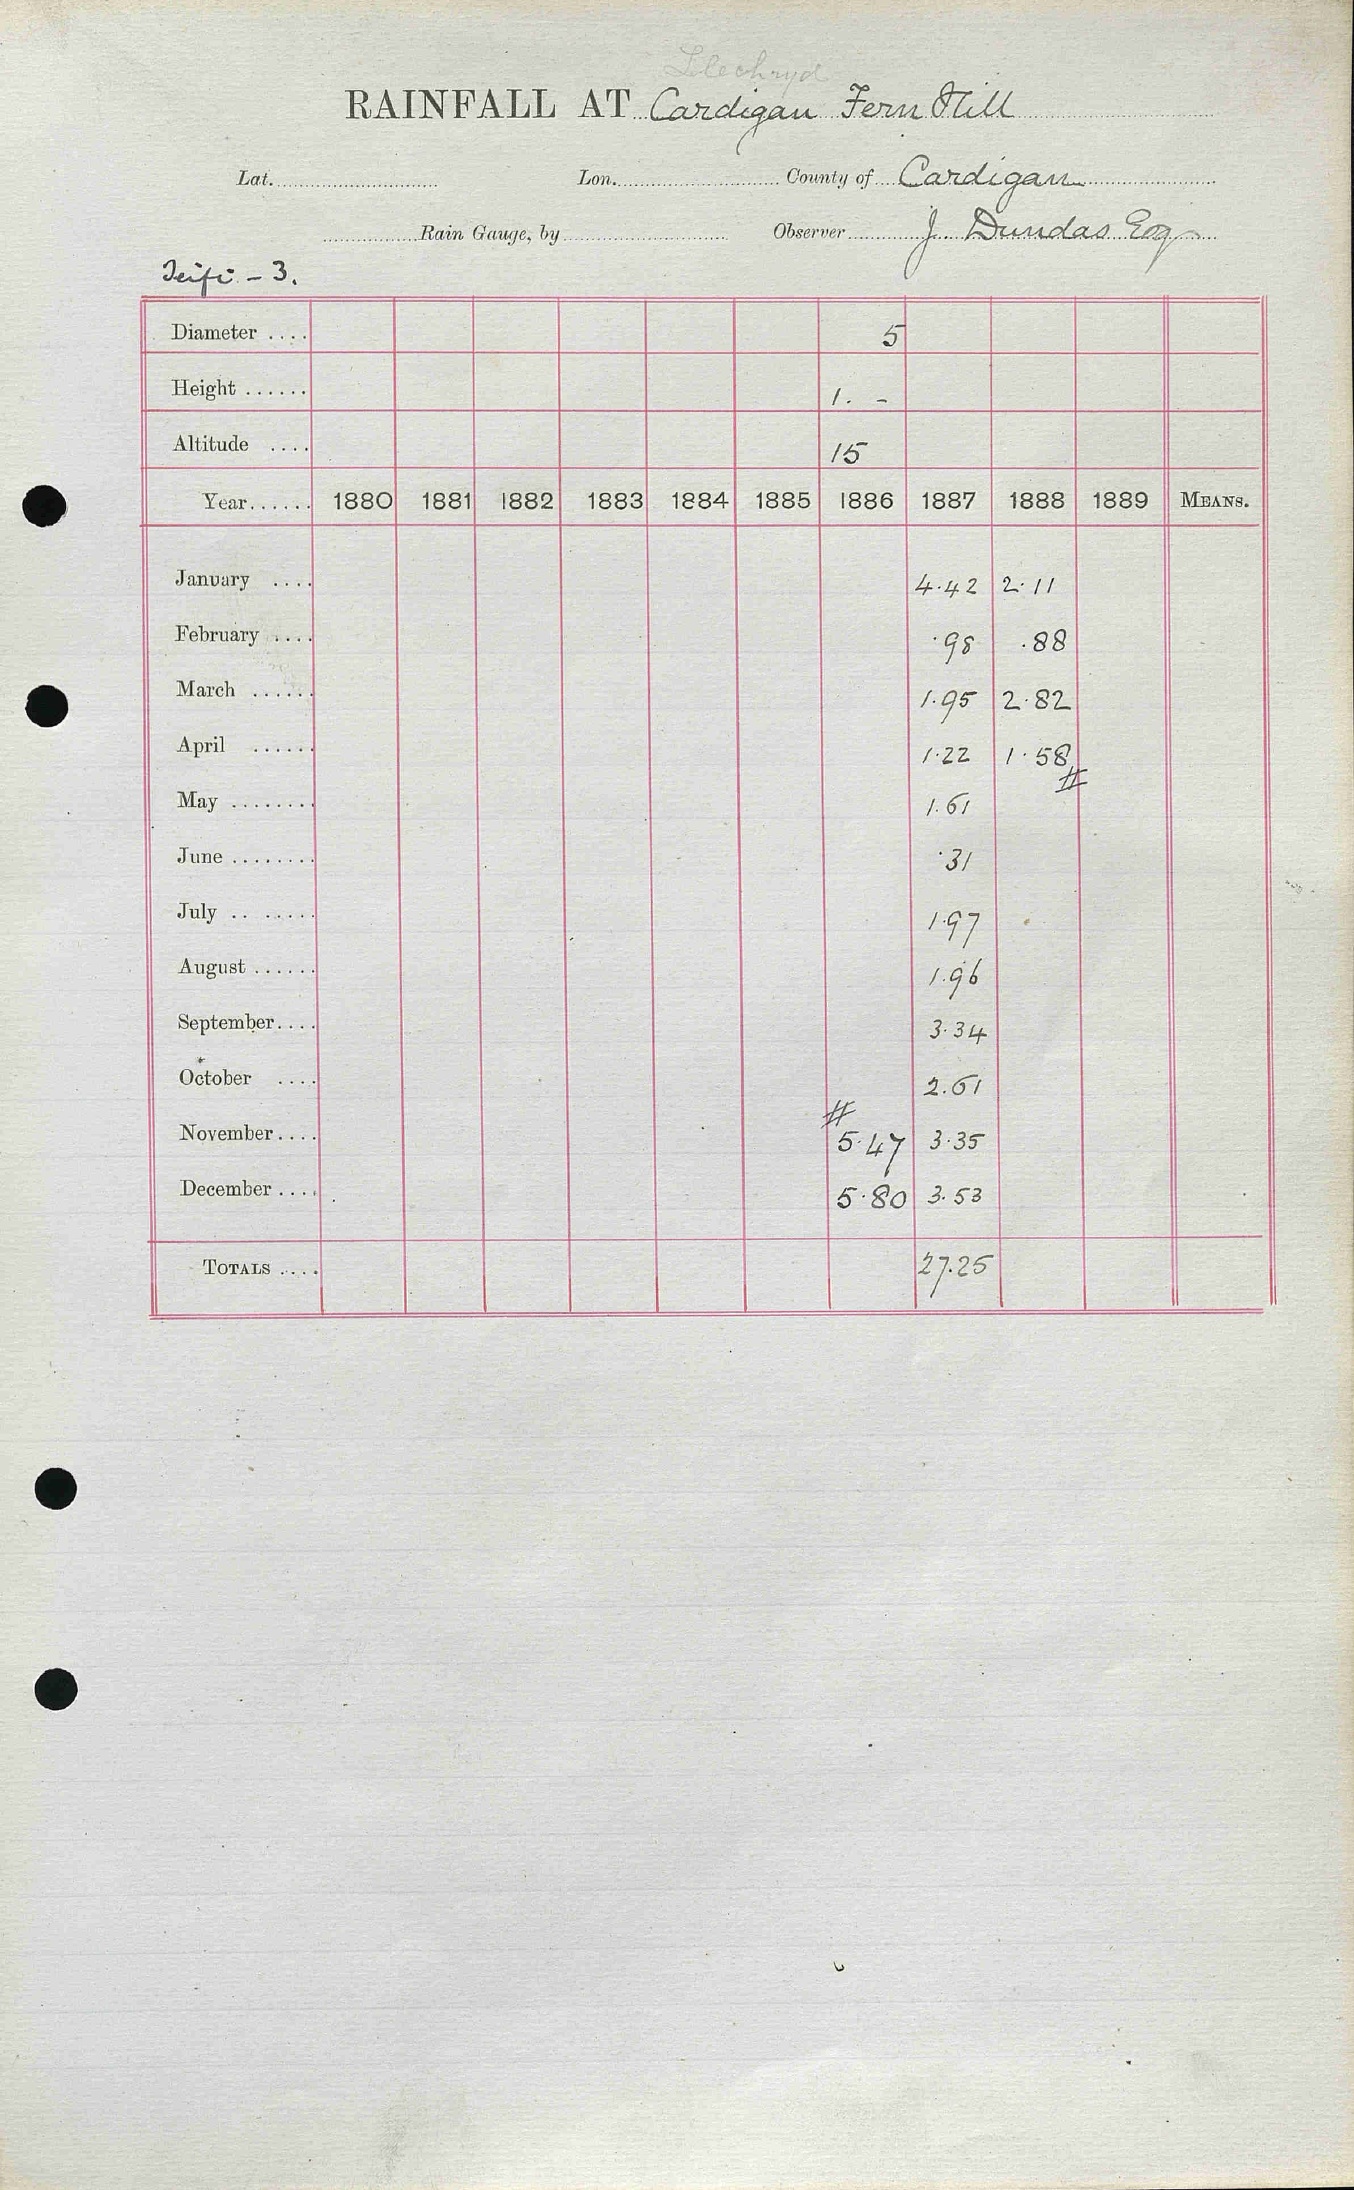 Llechryd
RAINFALL AT Cardigan Fern Hill
Lat. Lon. County of Cardigan
Rain Gauge, by Observer J. Dundas Esq
Teifi - 3.
Diameter .... 5
Height ...... 1. -
Altitude .... 15
Year...... 1880 1881 1882 1883 1884 1885 1886 1887 1888 1889 MEANS.
January .... 4.42 2.11
February .... .98 .88
March ...... 1.95 2.82
April ...... 1.22 1.58
#
May ........ 1.61
June ........ .31
July .. ..... 1.97
August ...... 1.96
September.... 3.34
October .... 2.61
#
November.... 5.47 3.35
December .... 5.80 3.53
TOTALS .... 27.25